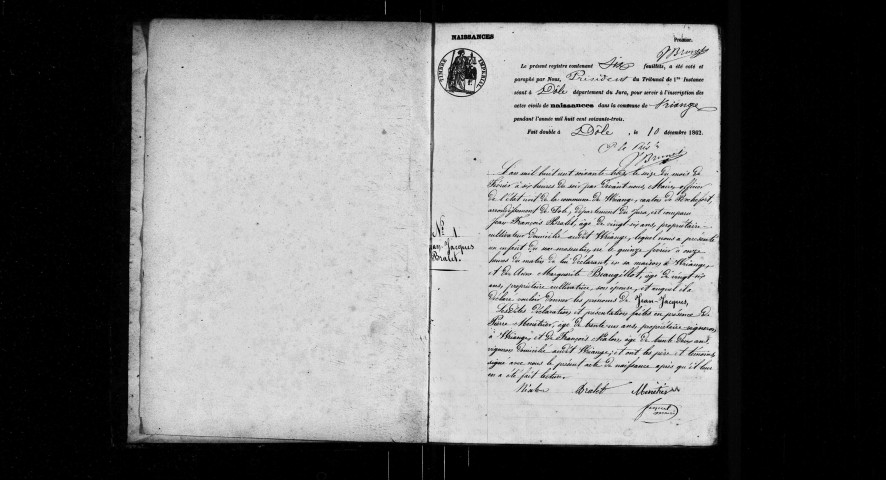 NAISSANCES
Premier.
Le présent registre contenant six feuillets, a été coté et
paraphé par Nous, Président du Tribunal de 1re Instance
séant à Dôle département du Jura, pour servir à l'inscription des
actes civils de naissances dans la commune de Vriange
pendant l'année mil huit cent soixante-trois.
Fait double à Dôle, le 10 décembre 1862.
TIMBRE IMPÉRIAL
L'an mil huit cent soixante trois le seize du mois de
Février à six heures du soir par devant nous, Maire officier
de l'état civil de la commune de Vriange, canton de Rochefort,
arrondissement de Dole, département du Jura, est comparu
Jean François Bralet, âgé de vingt six ans, propriétaire
cultivateur domicilié audit Vriange, lequel nous a présenté
un enfant du sexe masculin, né le quinze février à onze
heures du matin de lui déclarant, en sa maison à Vriange,
et de Anne Marguerite Beaugillot, âgée de vingt six
ans, propriétaire cultivatrice, son épouse, et auquel il a
déclaré vouloir donner les prénoms de Jean-Jacques,
Lesdites déclaration et présentation faites en présence de
Pierre Menétrier, âgé de trente ans, propriétaire vigneron
à Vriange, et de François âgé de trente deux ans,
vigneron domicilié audit Vriange; et ont les père et témoins
signé avec nous le présent acte de naissance après qu'il leur
en a été fait lecture.
N° 1.
Jean-Jacques
Bralet.
Bralet Menétrier